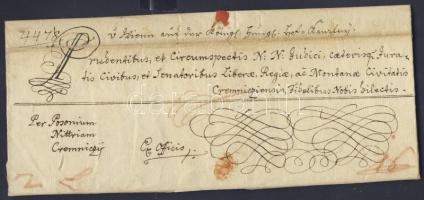 1447
à Wienn aus der Königl. Hung. Hof-Kanzley.
Prudentibus, et Circumspectis N: N: Judici, cæterisq Jura-
tis Civibus, et Senatoribus Liberæ, Regiæ, ac Montanæ Civitatis
Cremniczensis, Fidelibus Nobis Dilectis.
Per Posonium
Nittriam
Cremniczÿ
Ex Officio